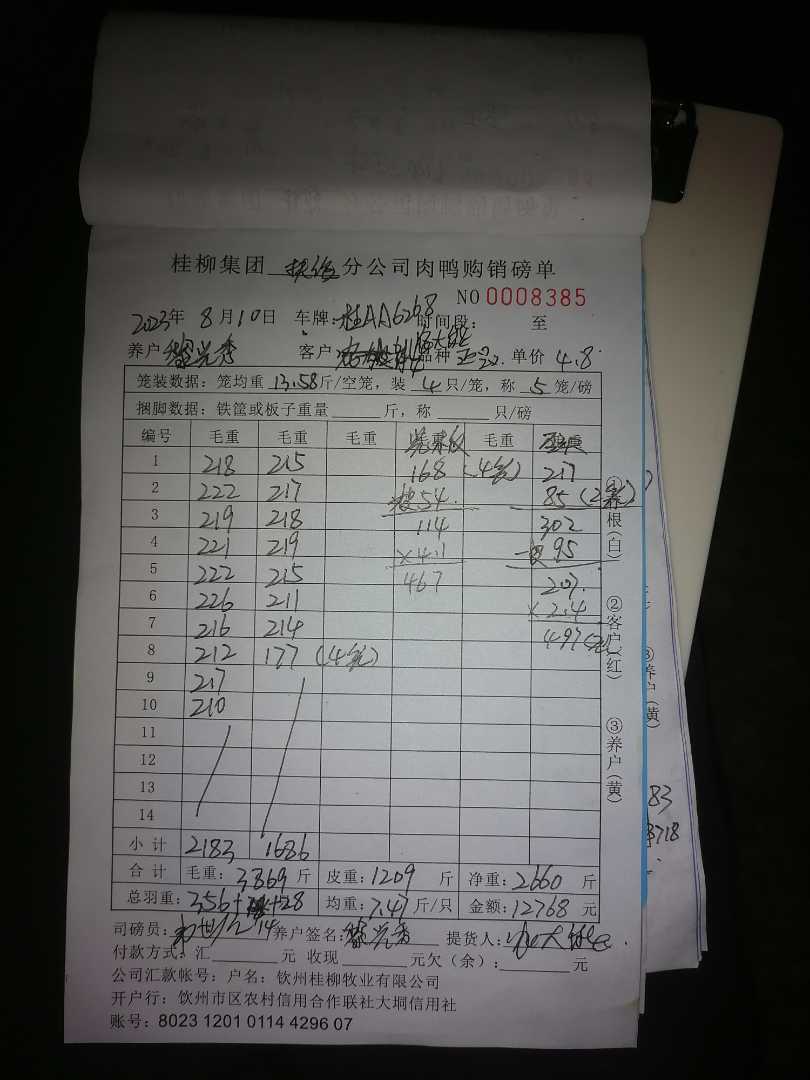 桂柳集团 分公司肉鸭购销磅单
NO 0008385
2023年 8月10日 车牌:桂AA6268 时间段: 至
养户 黎兴秀 客户 品种 单价 4.8
笼装数据:笼均重 13.58斤/空笼,装 4只/笼,称 5笼/磅
捆脚数据:铁筐或板子重量 斤,称 只/磅
编号 毛重 毛重 毛重 毛重
1 218 215 168 (4笼) 217
2 222 217 54. 85 (2笼)
3 219 218 114 302
4 221 219 ×4.1 95
5 222 215 467 207.
6 226 211 ×2.4
7 216 214 497(元)
8 212 177 (4笼)
9 217
10 210
11
12
13
14
小计 2183 1686
合计 毛重:3869斤 皮重:1209斤 净重:2660斤
总羽重:356+ +28 均重:7.47斤/只 金额:12768元
14
司磅员: 养户签名:黎兴秀 提货人:
付款方式:汇 元 收现 元欠(余): 元
公司汇款帐号:户名:钦州桂柳牧业有限公司
开户行:钦州市区农村信用合作联社大垌信用社
账号:8023 1201 0114 4296 07
①存根(白)
②客户(红)
③养户(黄)
③养户(黄)
83
718